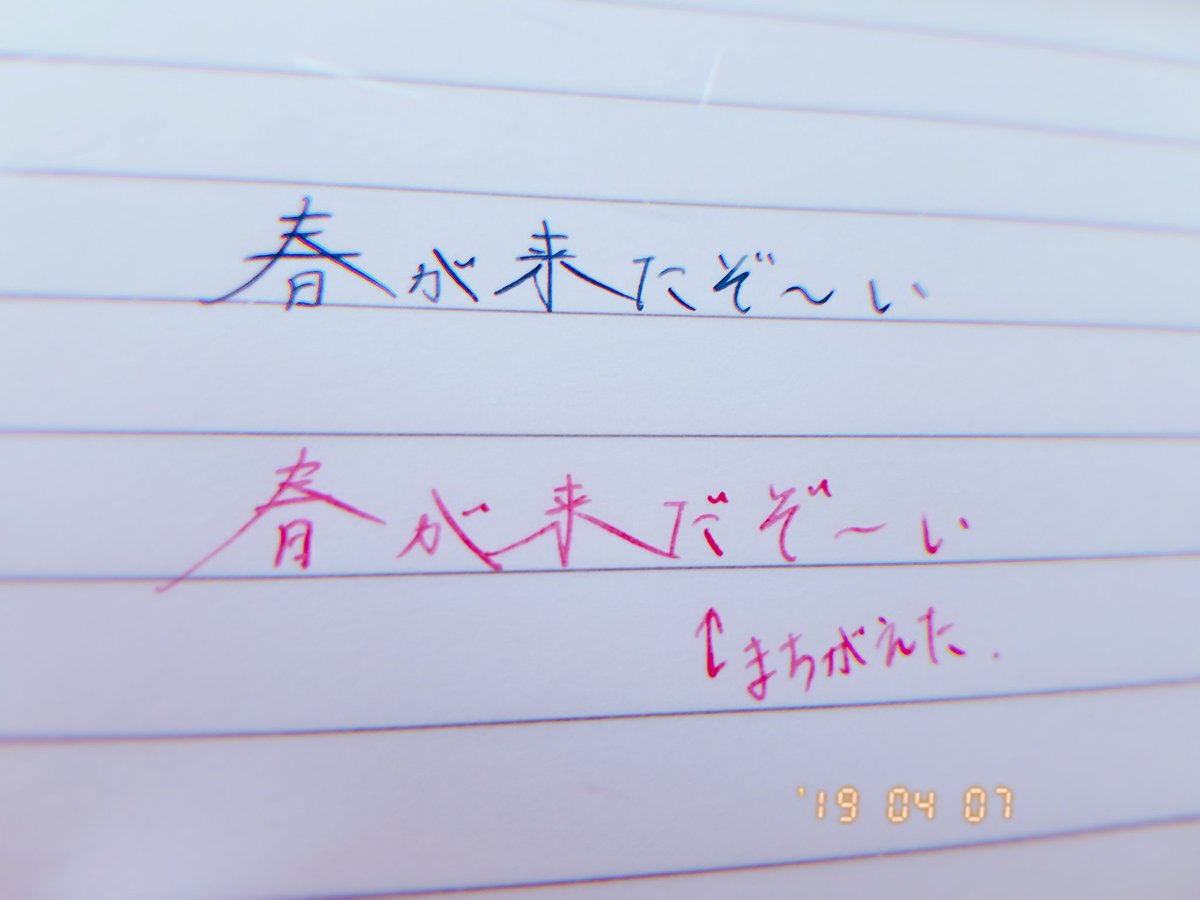 春が来たぞ〜い
春が来だぞ〜い
↑まちがえた.
'19 04 07